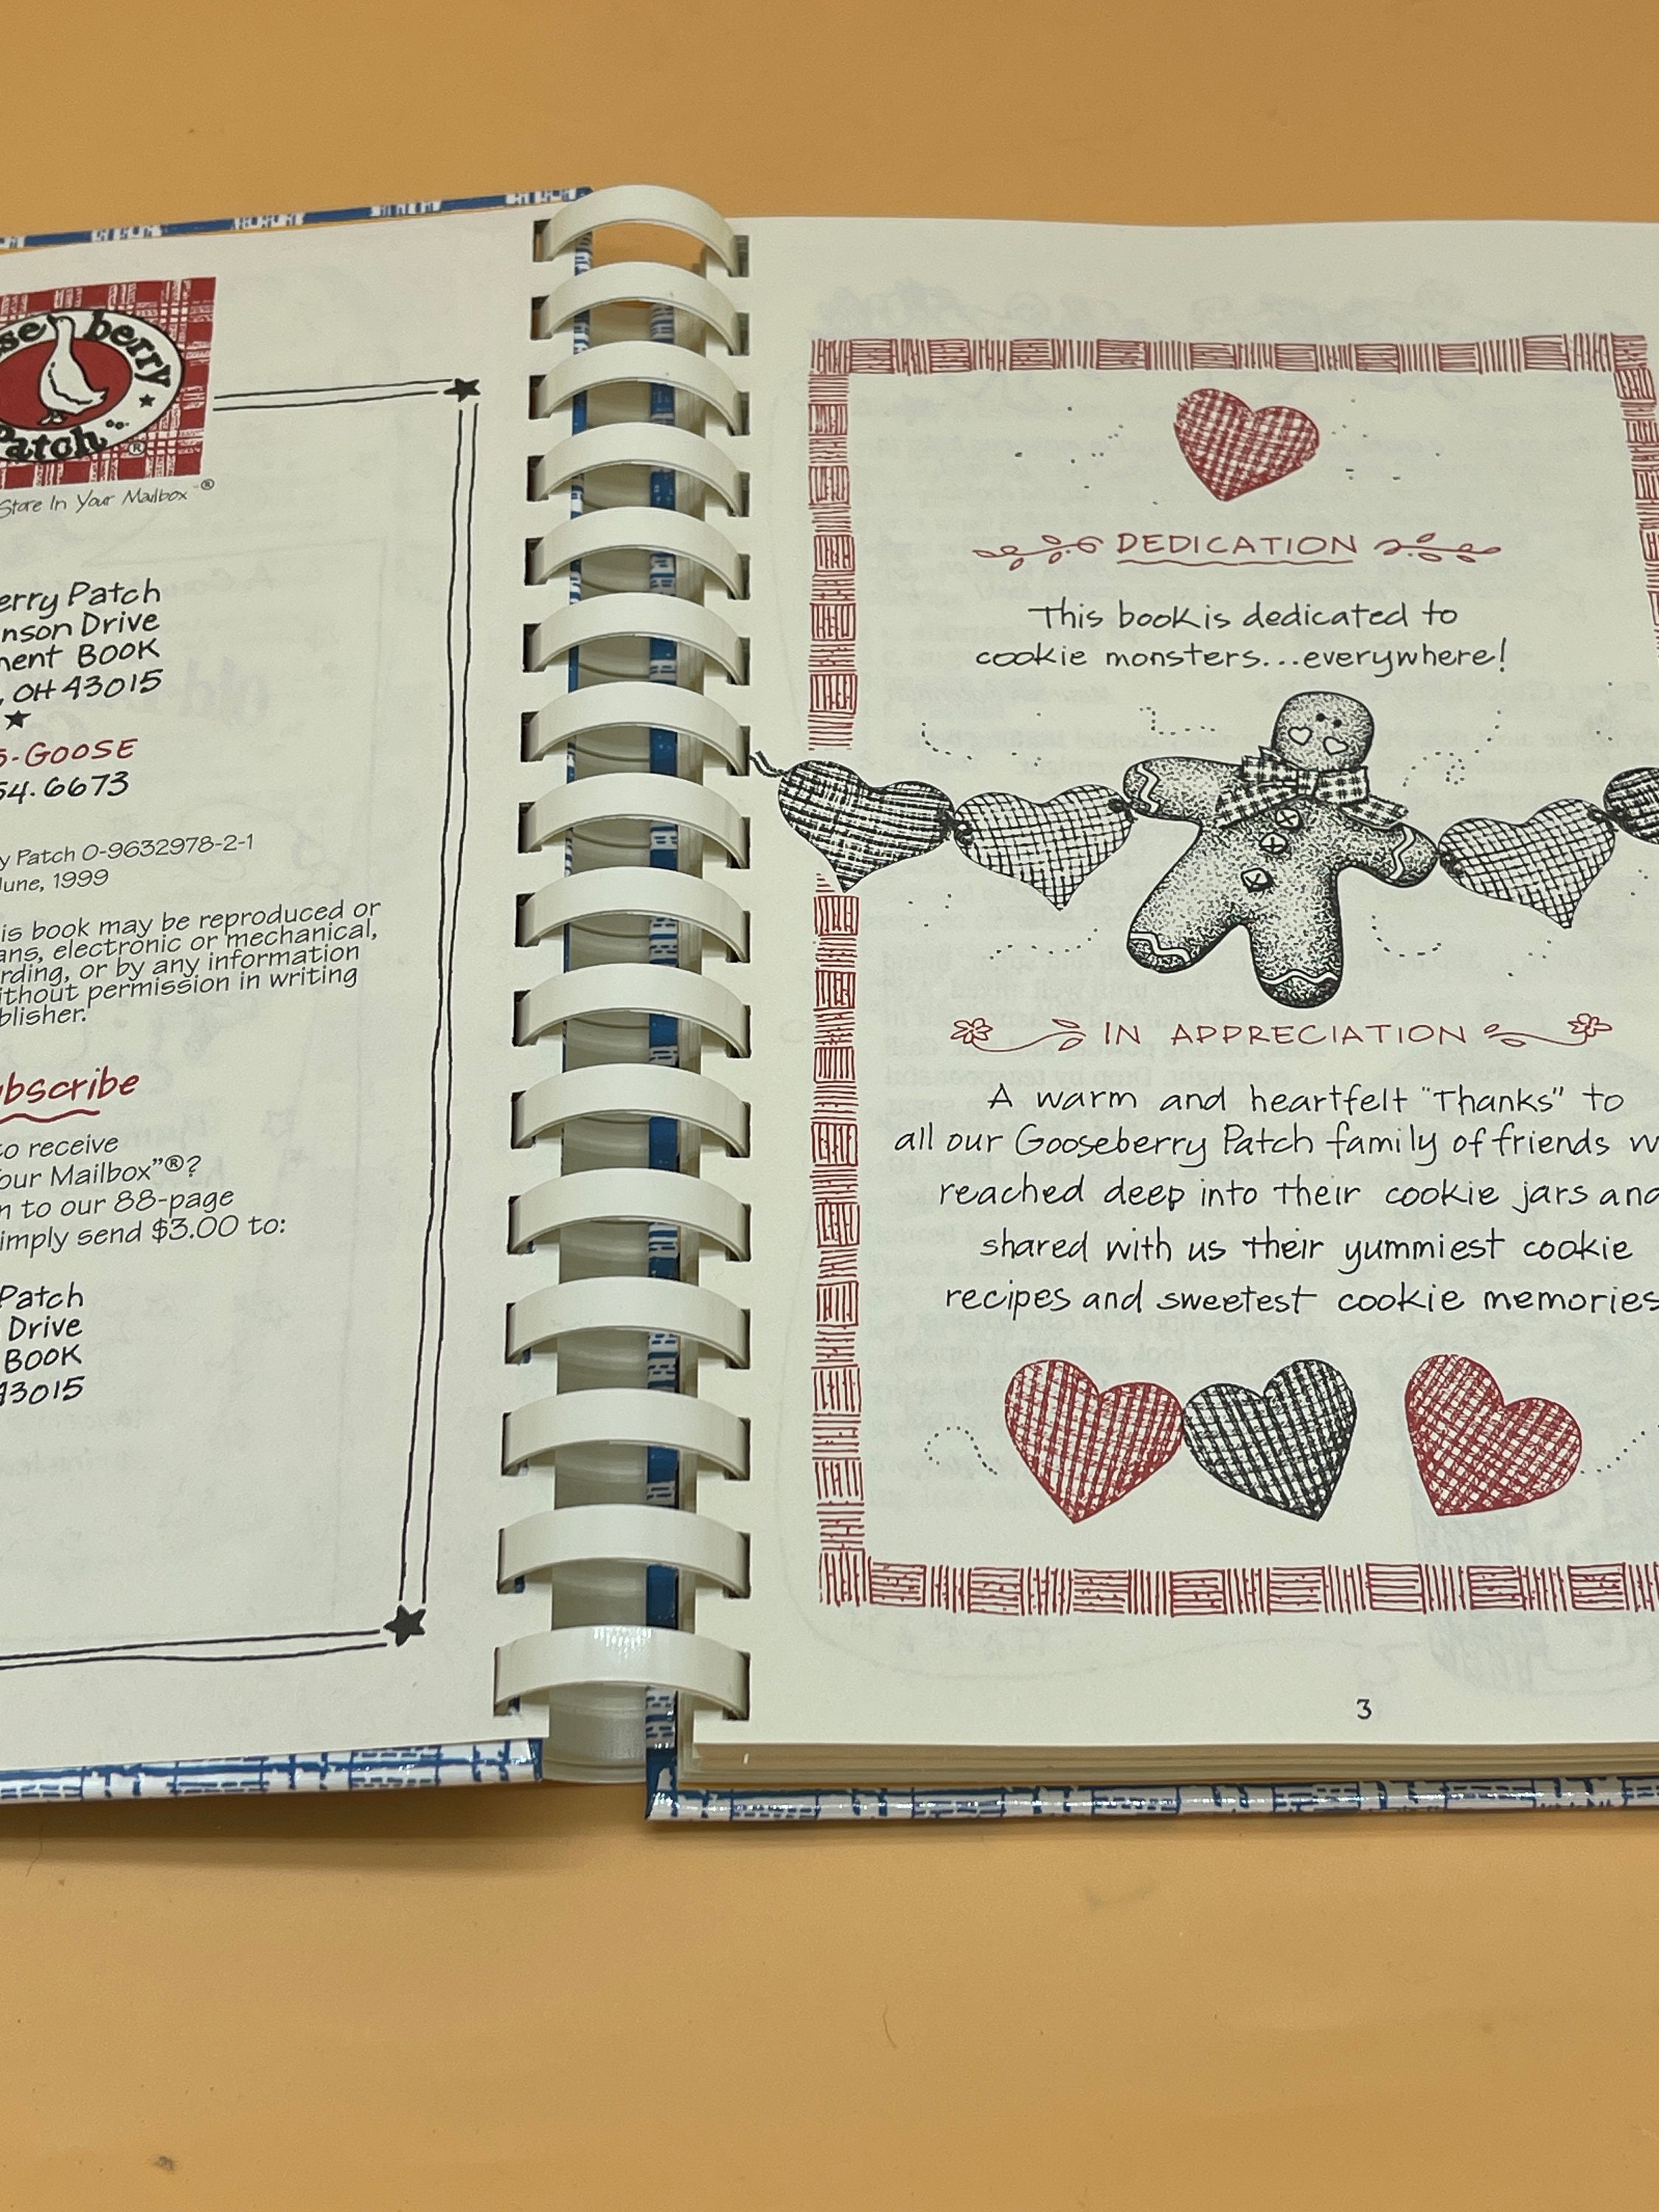 berry
Patch
®
Store In Your Mailbox"®
erry Patch
nson Drive
ment BOOK
, OH 43015
5-GOOSE
54.6673
y Patch 0-9632978-2-1
June, 1999
is book may be reproduced or
ans, electronic or mechanical,
rding, or by any information
ithout permission in writing
blisher.
ubscribe
to receive
our Mailbox"®?
n to our 88-page
imply send $3.00 to:
Patch
Drive
BOOK
43015
DEDICATION
This book is dedicated to
cookie monsters...everywhere!
IN APPRECIATION
A warm and heartfelt "Thanks" to
all our Gooseberry Patch family of friends w
reached deep into their cookie jars and
shared with us their yummiest cookie
recipes and sweetest cookie memories
3